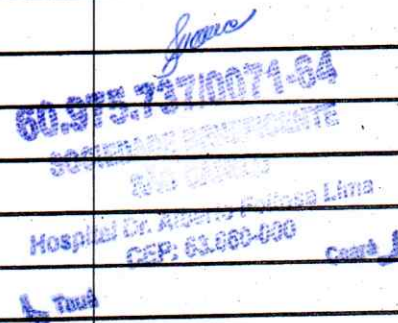 60.975.737/0071-64
SOCIEDADE BENEFICENTE
SÃO CAMILO
Hospital Dr. Alberto Feitosa Lima
CEP: 63.660-000
Tauá Ceará